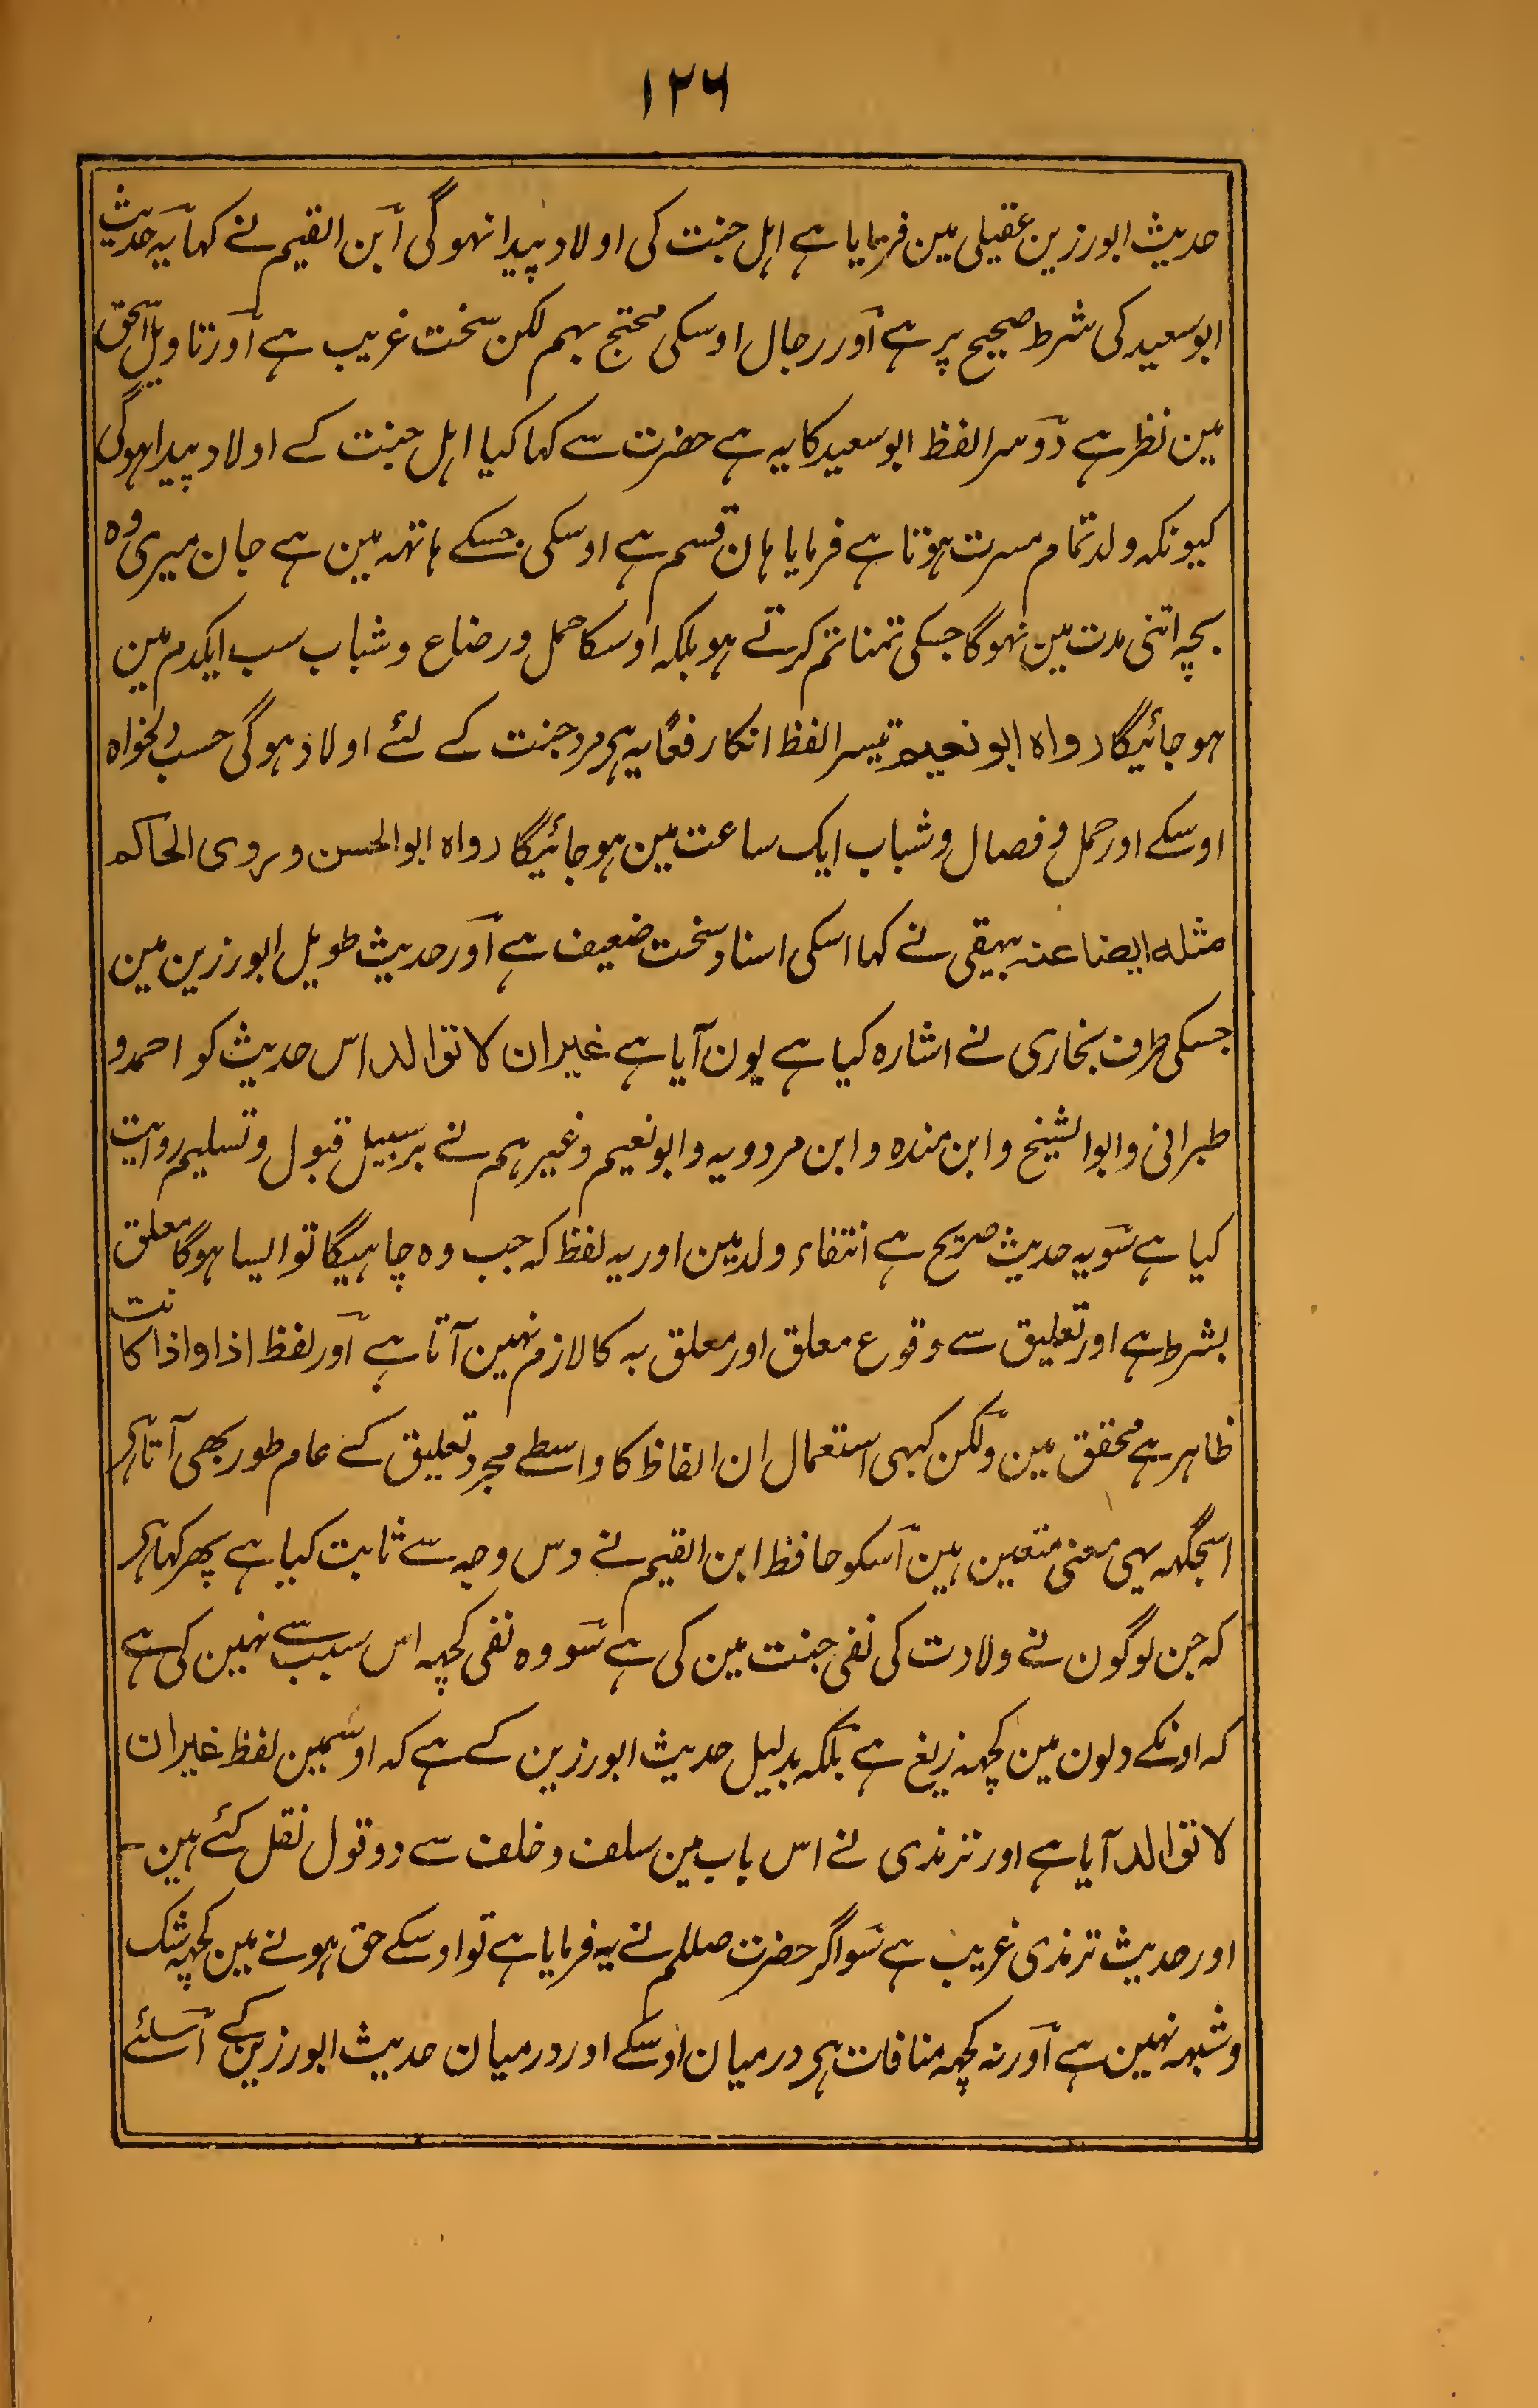 ۱۲۶
حدیث ابورزین عقیلی مین فرمایا ہے اہل جنت کی اولاد پیدا نہوگی ابن القیم نے کہا یہ حدیث
ابوسعید کی شرط صحیح پر ہے اور رجال اوسکی محتج بہم لکن سخت غریب ہے اور تاویل اسحق
مین نظر ہے دوسرا لفظ ابوسعید کا یہ ہے حضرت سے کہا کیا اہل جنت کے اولاد پیدا ہوگی
کیونکہ ولد تمام مسرت ہوتا ہے فرمایا ہان قسم ہے اوسکی جسکے ہاتھ مین ہے جان میری وہ
بچہ اتنی مدت مین نہوگا جسکی تمنا تم کرتے ہو بلکہ اوسکا حمل ورضاع وشباب سب ایکدم مین
ہوجائیگا رواہ ابو نعیم تیسرا لفظ انکا رفعًا یہ ہی مرد جنت کے لئے اولاد ہوگی حسب دلخواہ
اوسکے اور حمل وفصال وشباب ایک ساعت مین ہوجائیگا رواہ ابوالحسن وروی الحاکم
مثلہ ایضا عنہ بیہقی نے کہا اسکی اسناد سخت ضعیف ہے اور حدیث طویل ابورزین مین
جسکی طرف بخاری نے اشارہ کیا ہے یون آیا ہے غیر ان لا توالد اس حدیث کو احمد و
طبرانی وابوالشیخ وابن مندہ وابن مردویہ وابونعیم وغیرہم نے برسبیل قبول وتسلیم روایت
کیا ہے سو یہ حدیث صریح ہے انتفاء ولد مین اور یہ لفظ کہ جب وہ چاہیگا تو ایسا ہوگا معلق
بشرط ہے اور تعلیق سے وقوع معلق اور معلق بہ کا لازم نہین آتا ہے اور لفظ اذا واذا کانت
ظاہر ہے محقق مین ولکن کبھی استعمال ان الفاظ کا واسطے مجرد تعلیق کے عام طور بھی آتا ہی
اسجگہہ یہی معنی متعین ہین اسکو حافظ ابن القیم نے دس وجہ سے ثابت کیا ہے پھر کہا ہی
کہ جن لوگون نے ولادت کی نفی جنت مین کی ہے سو وہ نفی کچہہ اس سبب سے نہین کی ہے
کہ اونکے دلون مین کچہہ زیغ ہے بلکہ بدلیل حدیث ابورزین کے ہے کہ اوسمین لفظ غیر ان
لا توالد آیا ہے اور ترمذی نے اس باب مین سلف وخلف سے دو قول نقل کئے ہین ۔
اور حدیث ترمذی غریب ہے سو اگر حضرت صللم نے یہ فرمایا ہے تو اوسکے حق ہونے مین کچہہ شک
وشبہہ نہین ہے اور نہ کچہہ منافات ہی درمیان اوسکے اور درمیان حدیث ابورزین کے اسلئے